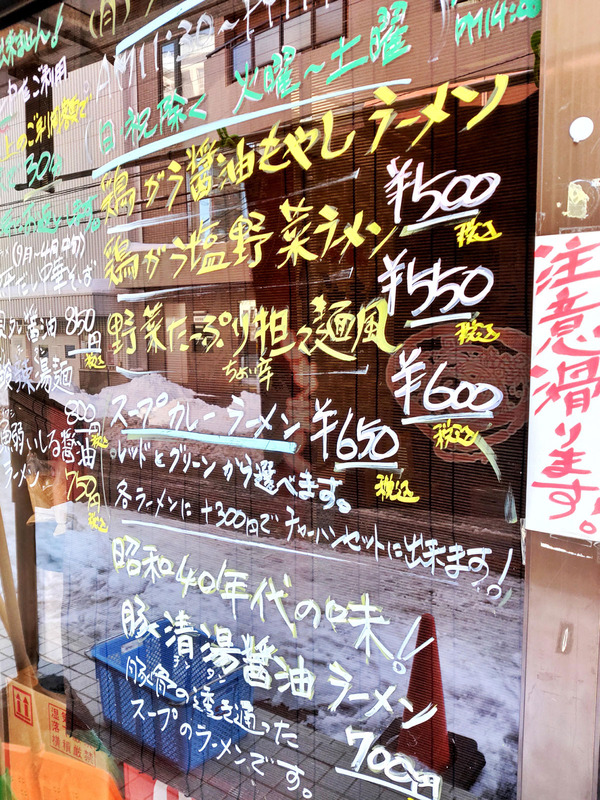 AM11:30～PM
PM14:00
火曜～土曜
日祝除く
鶏ガラ醤油もやしラーメン
¥500
税込
鶏ガラ塩野菜ラーメン
¥550
税込
野菜たーぷり担々麺風
ちょい辛
¥600
税込
スープカレーラーメン ¥650
税込
レッドとグリーンから選べます。
各ラーメンに+300円でチャーハンセットに出来ます!
昭和40年代の味!
豚清湯醤油ラーメン
チンタン
700円
豚骨の透き通った
スープのラーメンです。
ご利用
上のご利用
30
醤油 850円
税込
湯麺
800円
税込
いしる醤油
ラーメン 750円
税込
注意滑ります。